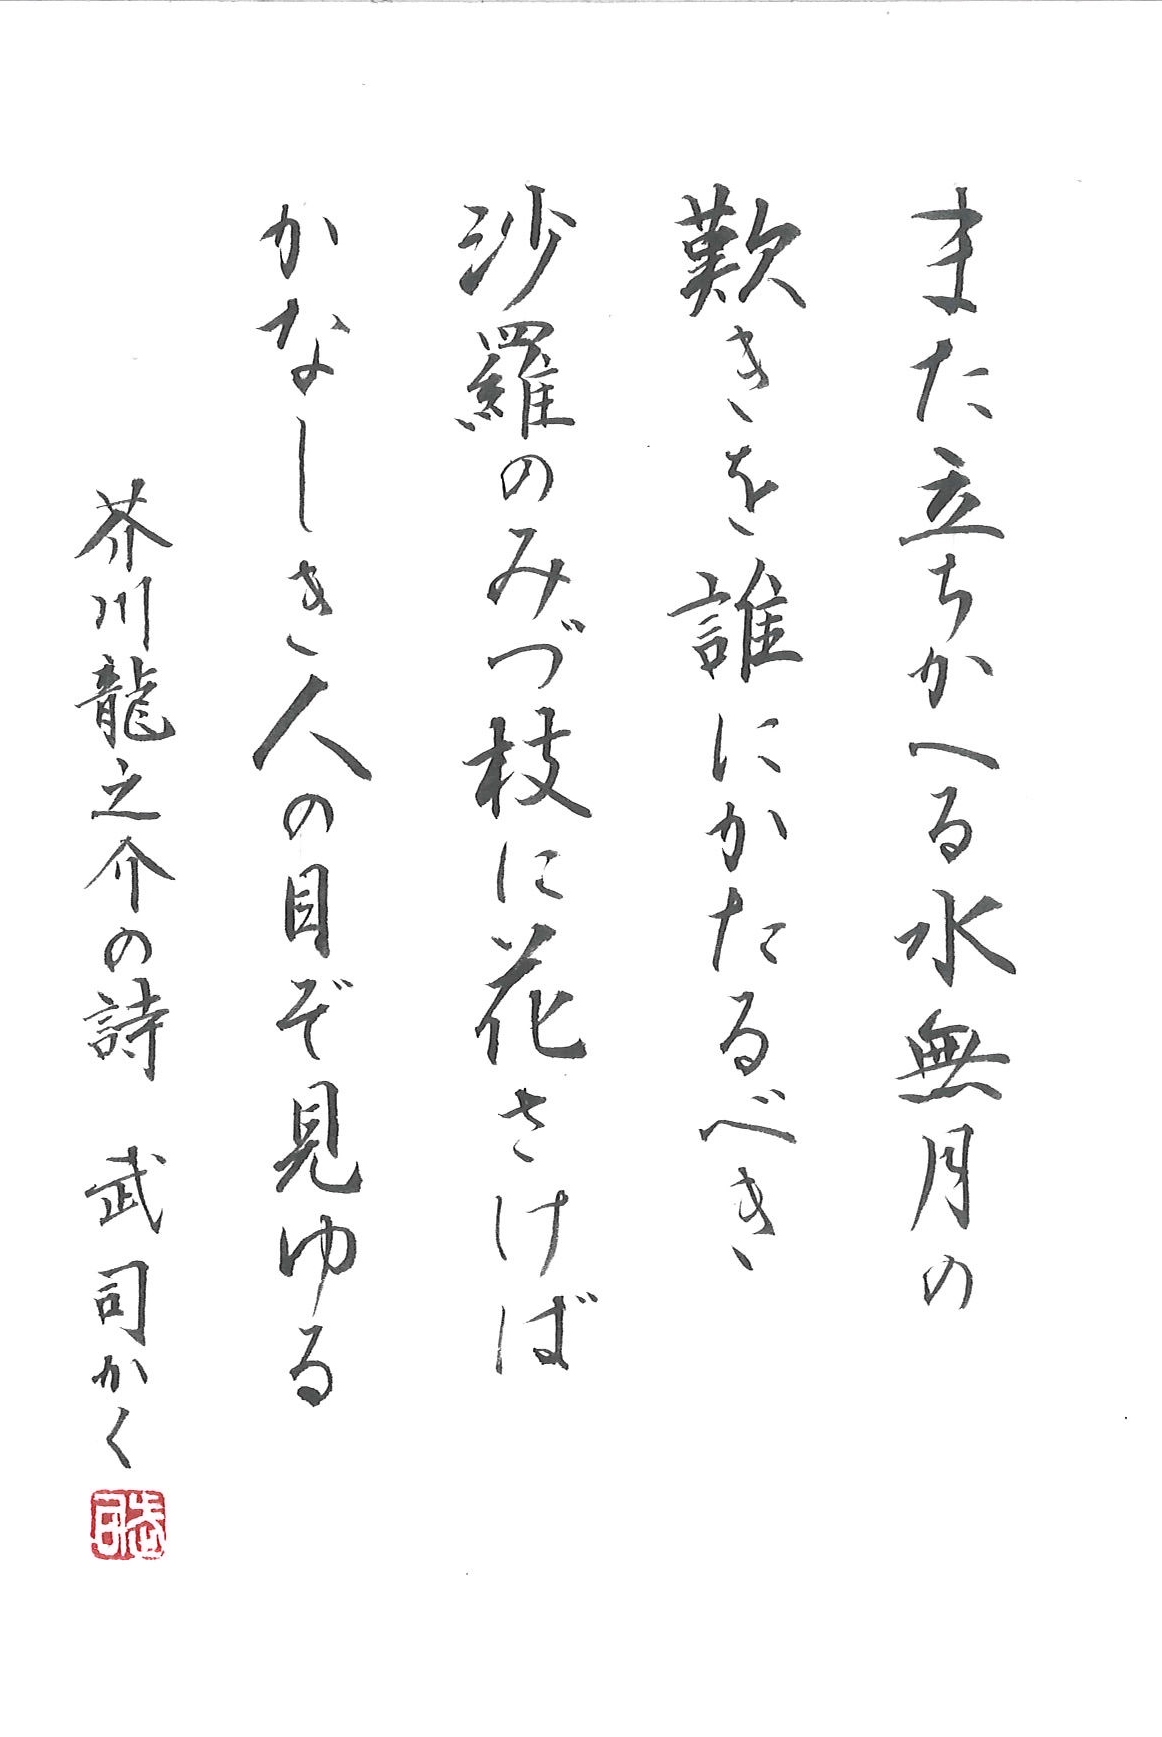 また立ちかへる水無月の
歎きを誰にかたるべき
沙羅のみづ枝に花さけば
かなしき人の目ぞ見ゆる
芥川龍之介の詩　武司かく
武司